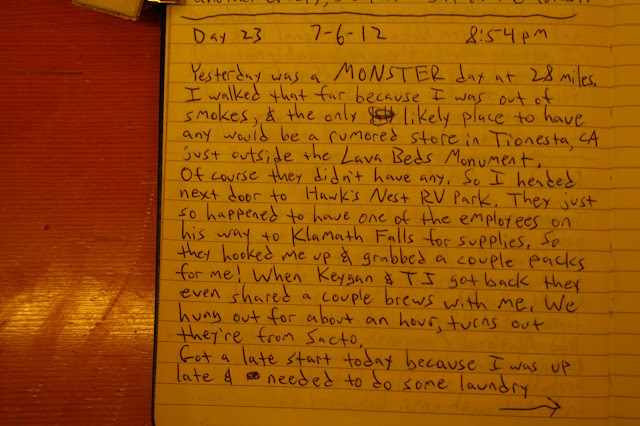 Day 23 7-6-12 8:54pm
Yesterday was a MONSTER day at 28 miles.
I walked that far because I was out of
smokes, & the only likely place to have
any would be a rumored store in Tionesta, CA
just outside the Lava Beds Monument.
Of course they didn't have any. So I headed
next door to Hawk's Nest RV Park. They just
so happened to have one of the employees on
his way to Klamath Falls for supplies. So
they hooked me up & grabbed a couple packs
for me! When Keygan & TJ got back they
even shared a couple brews with me. We
hung out for about an hour, turns out
they're from Sacto.
Got a late start today because I was up
late & needed to do some laundry